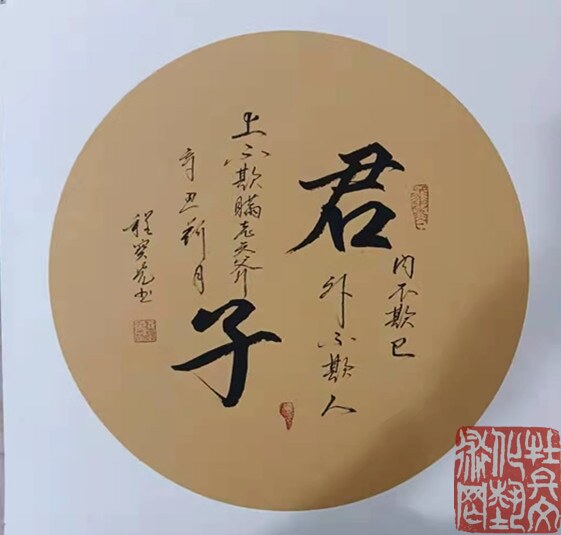 君子
内不欺己
外不欺人
上不欺瞒老天爷
辛丑新月
程
书